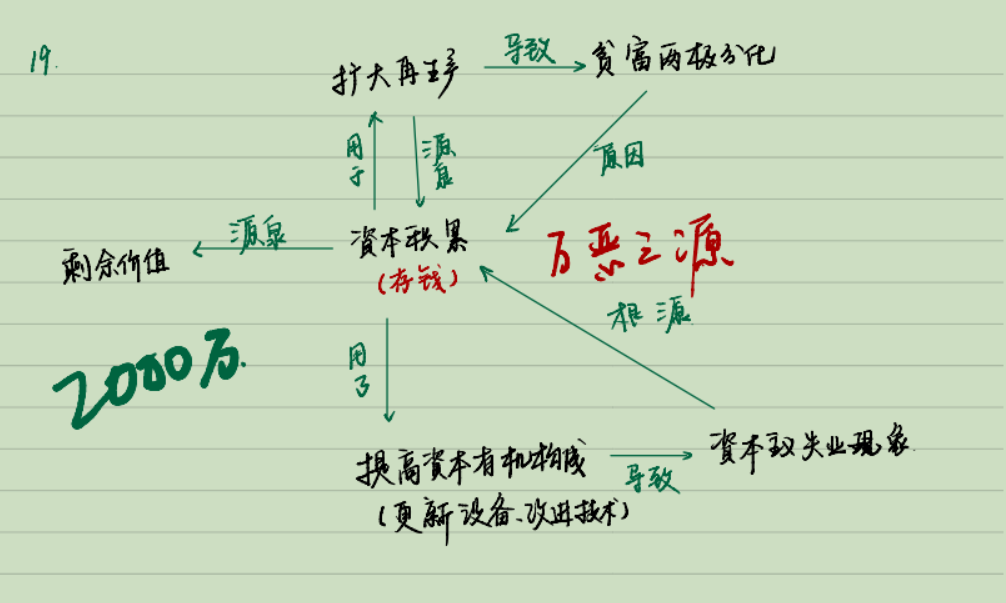 19.
扩大再生产 导致 贫富两极分化
用于 源泉 原因
剩余价值 源泉 资本积累 万恶之源
(存钱)
根源
2000万.
用于
提高资本有机构成 导致 资本致失业现象
(更新设备、改进技术)